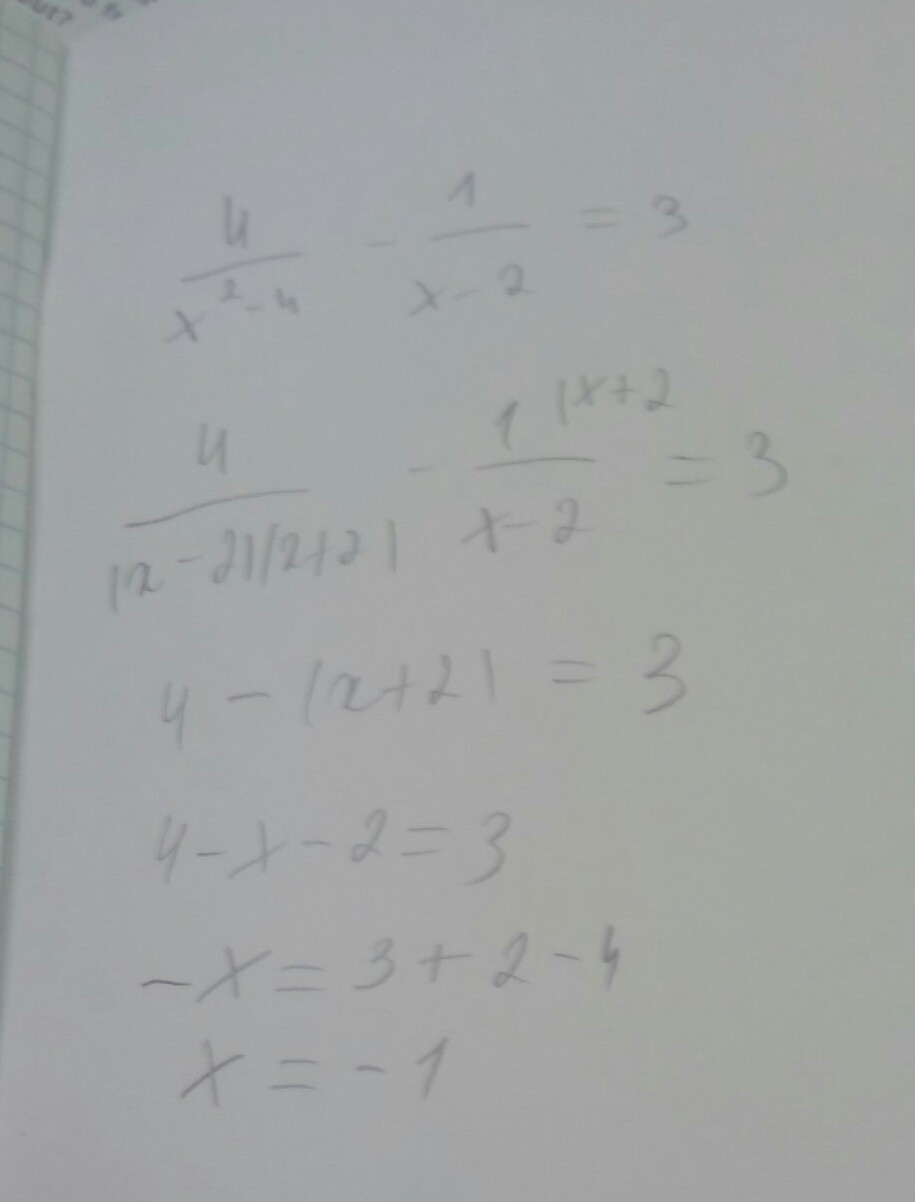 4/(x²-4) - 1/(x-2) = 3
4/((x-2)(x+2)) - 1(x+2/(x-2) = 3
4-(x+2) = 3
4-x-2=3
-x=3+2-4
x=-1